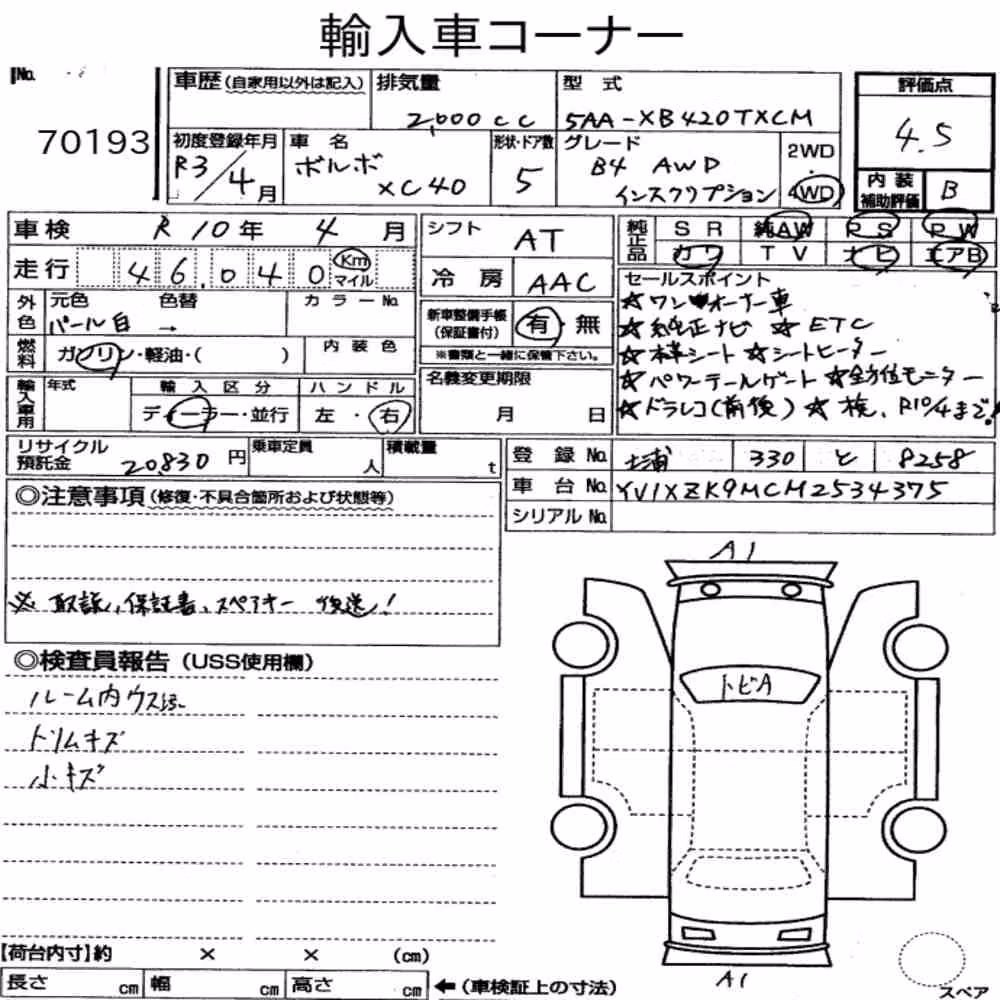 輸入車コーナー
No.
70193
車歴 (自家用以外は記入) 排気量 型式 評価点
2,000cc 5AA-XB420TXCM 4.5
初度登録年月 車名 形状・ドア数 グレード 2WD
R3/4月 ボルボ XC40 5 B4 AWD インスクリプション 4WD
内装補助評価 B
車検 R10年 4月 シフト AT 純正品 SR 純AW PS PW
カワ TV ナビ エアB
走行 46,040 Km マイル 冷房 AAC
セールスポイント
☆ワンオーナー車
外色 元色 色替 カラーNo. 新車整備手帳(保証書付) 有・無
パール白 →
☆純正ナビ ☆ETC
☆本革シート ☆シートヒーター
燃料 ガソリン・軽油・( ) 内装色 ※書類と一緒に保管下さい。
☆パワーテールゲート ☆全方位モニター
輸入車用 年式 輸入区分 ハンドル 名義変更期限
ディーラー・並行 左・右 月 日
☆ドラレコ(前後) ☆検、R10/4まで!
リサイクル預託金 20,830円 乗車定員 人 積載量 t
登録No. 土浦 330 と 8258
車台No. YV1XZK9MCM2534375
シリアルNo.
◎注意事項 (修復・不具合箇所および状態等)
※ 取説、保証書、スペアキー 後送!
◎検査員報告 (USS使用欄)
ルーム内ウスヨゴレ
トリムキズ
小キズ
A1
トビA
A1
【荷台内寸】約 × × (cm)
長さ cm 幅 cm 高さ cm ←(車検証上の寸法)
スペア